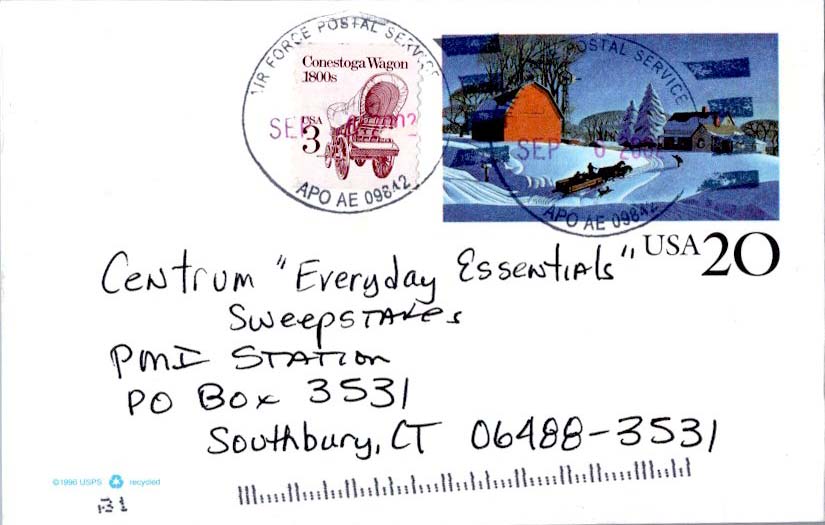 AIR FORCE POSTAL SERVICE
Conestoga Wagon
1800s
USA
3
SEP
APO AE 09842
POSTAL SERVICE
SEP 6
APO AE 09842
USA 20
Centrum "Everyday Essentials"
Sweepstakes
PMI STATION
PO Box 3531
Southbury, CT 06488-3531
©1996 USPS recycled
31